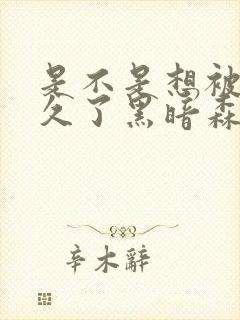 是不是想被
久了黑暗森
辛木辭